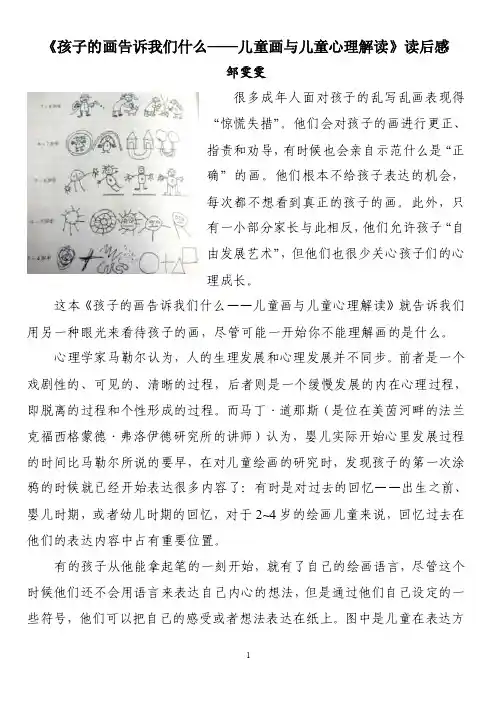 《孩子的画告诉我们什么——儿童画与儿童心理解读》读后感
邹雯雯
很多成年人面对孩子的乱写乱画表现得
“惊慌失措”。他们会对孩子的画进行更正、
指责和劝导，有时候也会亲自示范什么是“正
确”的画。他们根本不给孩子表达的机会，
每次都不想看到真正的孩子的画。此外，只
有一小部分家长与此相反，他们允许孩子“自
由发展艺术”，但他们也很少关心孩子们的心
理成长。
这本《孩子的画告诉我们什么——儿童画与儿童心理解读》就告诉我们
用另一种眼光来看待孩子的画，尽管可能一开始你不能理解画的是什么。
心理学家马勒尔认为，人的生理发展和心理发展并不同步。前者是一个
戏剧性的、可见的、清晰的过程，后者则是一个缓慢发展的内在心理过程，
即脱离的过程和个性形成的过程。而马丁·道那斯（是位在美茵河畔的法兰
克福西格蒙德·弗洛伊德研究所的讲师）认为，婴儿实际开始心里发展过程
的时间比马勒尔所说的要早，在对儿童绘画的研究时，发现孩子的第一次涂
鸦的时候就已经开始表达很多内容了：有时是对过去的回忆——出生之前、
婴儿时期，或者幼儿时期的回忆，对于 2~4 岁的绘画儿童来说，回忆过去在
他们的表达内容中占有重要位置。
有的孩子从他能拿起笔的一刻开始，就有了自己的绘画语言，尽管这个
时候他们还不会用语言来表达自己内心的想法，但是通过他们自己设定的一
些符号，他们可以把自己的感受或者想法表达在纸上。图中是儿童在表达方
1